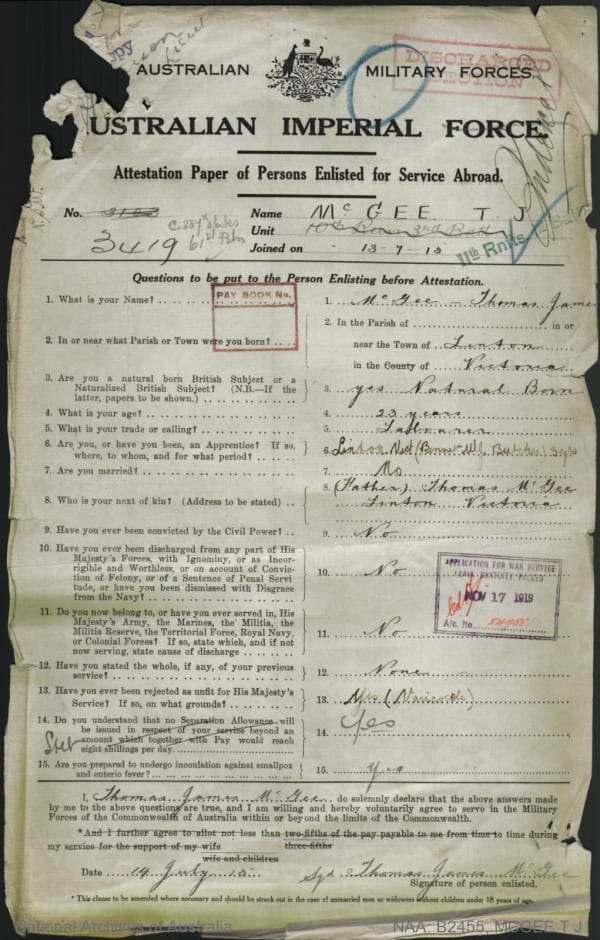 DISCHARGED
AUSTRALIAN MILITARY FORCES.
USTRALIAN IMPERIAL FORCE.
Attestation Paper of Persons Enlisted for Service Abroad.
No. 3419
Name McGEE T. J
Unit
61st Btn
Joined on 13-7-15
11th Rnfts
Questions to be put to the Person Enlisting before Attestation.
PAY BOOK No.
1. What is your Name? 1. McGee - Thomas James
2. In or near what Parish or Town were you born? 2. In the Parish of in or
near the Town of Linton
in the County of Victoria
3. Are you a natural born British Subject or a
Naturalized British Subject? (N.B.—If the
latter, papers to be shown.) 3. yes Natural Born
4. What is your age? 4. 23 years
5. What is your trade or calling? 5. Labourer
6. Are you, or have you been, an Apprentice? If so,
where, to whom, and for what period? 6.
7. Are you married? 7. No
8. Who is your next of kin? (Address to be stated) 8. (Father) Thomas McGee
Linton Victoria
9. Have you ever been convicted by the Civil Power? 9. No
10. Have you ever been discharged from any part of His
Majesty's Forces, with Ignominy, or as Incor-
rigible and Worthless, or on account of Convic-
tion of Felony, or of a Sentence of Penal Servi-
tude, or have you been dismissed with Disgrace
from the Navy? 10. No
APPLICATION FOR WAR SERVICE
NOV 17 1919
A/c. No.
11. Do you now belong to, or have you ever served in, His
Majesty's Army, the Marines, the Militia, the
Militia Reserve, the Territorial Force, Royal Navy,
or Colonial Forces? If so, state which, and if not
now serving, state cause of discharge 11. No
12. Have you stated the whole, if any, of your previous
service? 12. None
13. Have you ever been rejected as unfit for His Majesty's
Service? If so, on what grounds? 13. Yes
14. Do you understand that no Separation Allowance will
be issued in respect of your service beyond an
amount which together with Pay would reach
eight shillings per day. 14. Yes
Stet
15. Are you prepared to undergo inoculation against smallpox
and enteric fever? 15. Yes
I, Thomas James McGee do solemnly declare that the above answers made
by me to the above questions are true, and I am willing and hereby voluntarily agree to serve in the Military
Forces of the Commonwealth of Australia within or beyond the limits of the Commonwealth.
*And I further agree to allot not less than two-fifths of the pay payable to me from time to time during
three-fifths
my service for the support of my wife
wife and children
Date 14 July 15
Sgd Thomas James McGee
Signature of person enlisted.
* This clause to be amended where necessary and should be struck out in the case of unmarried men or widowers without children under 18 years of age.
National Archives of Australia
NAA: B2455, MCGEE T J